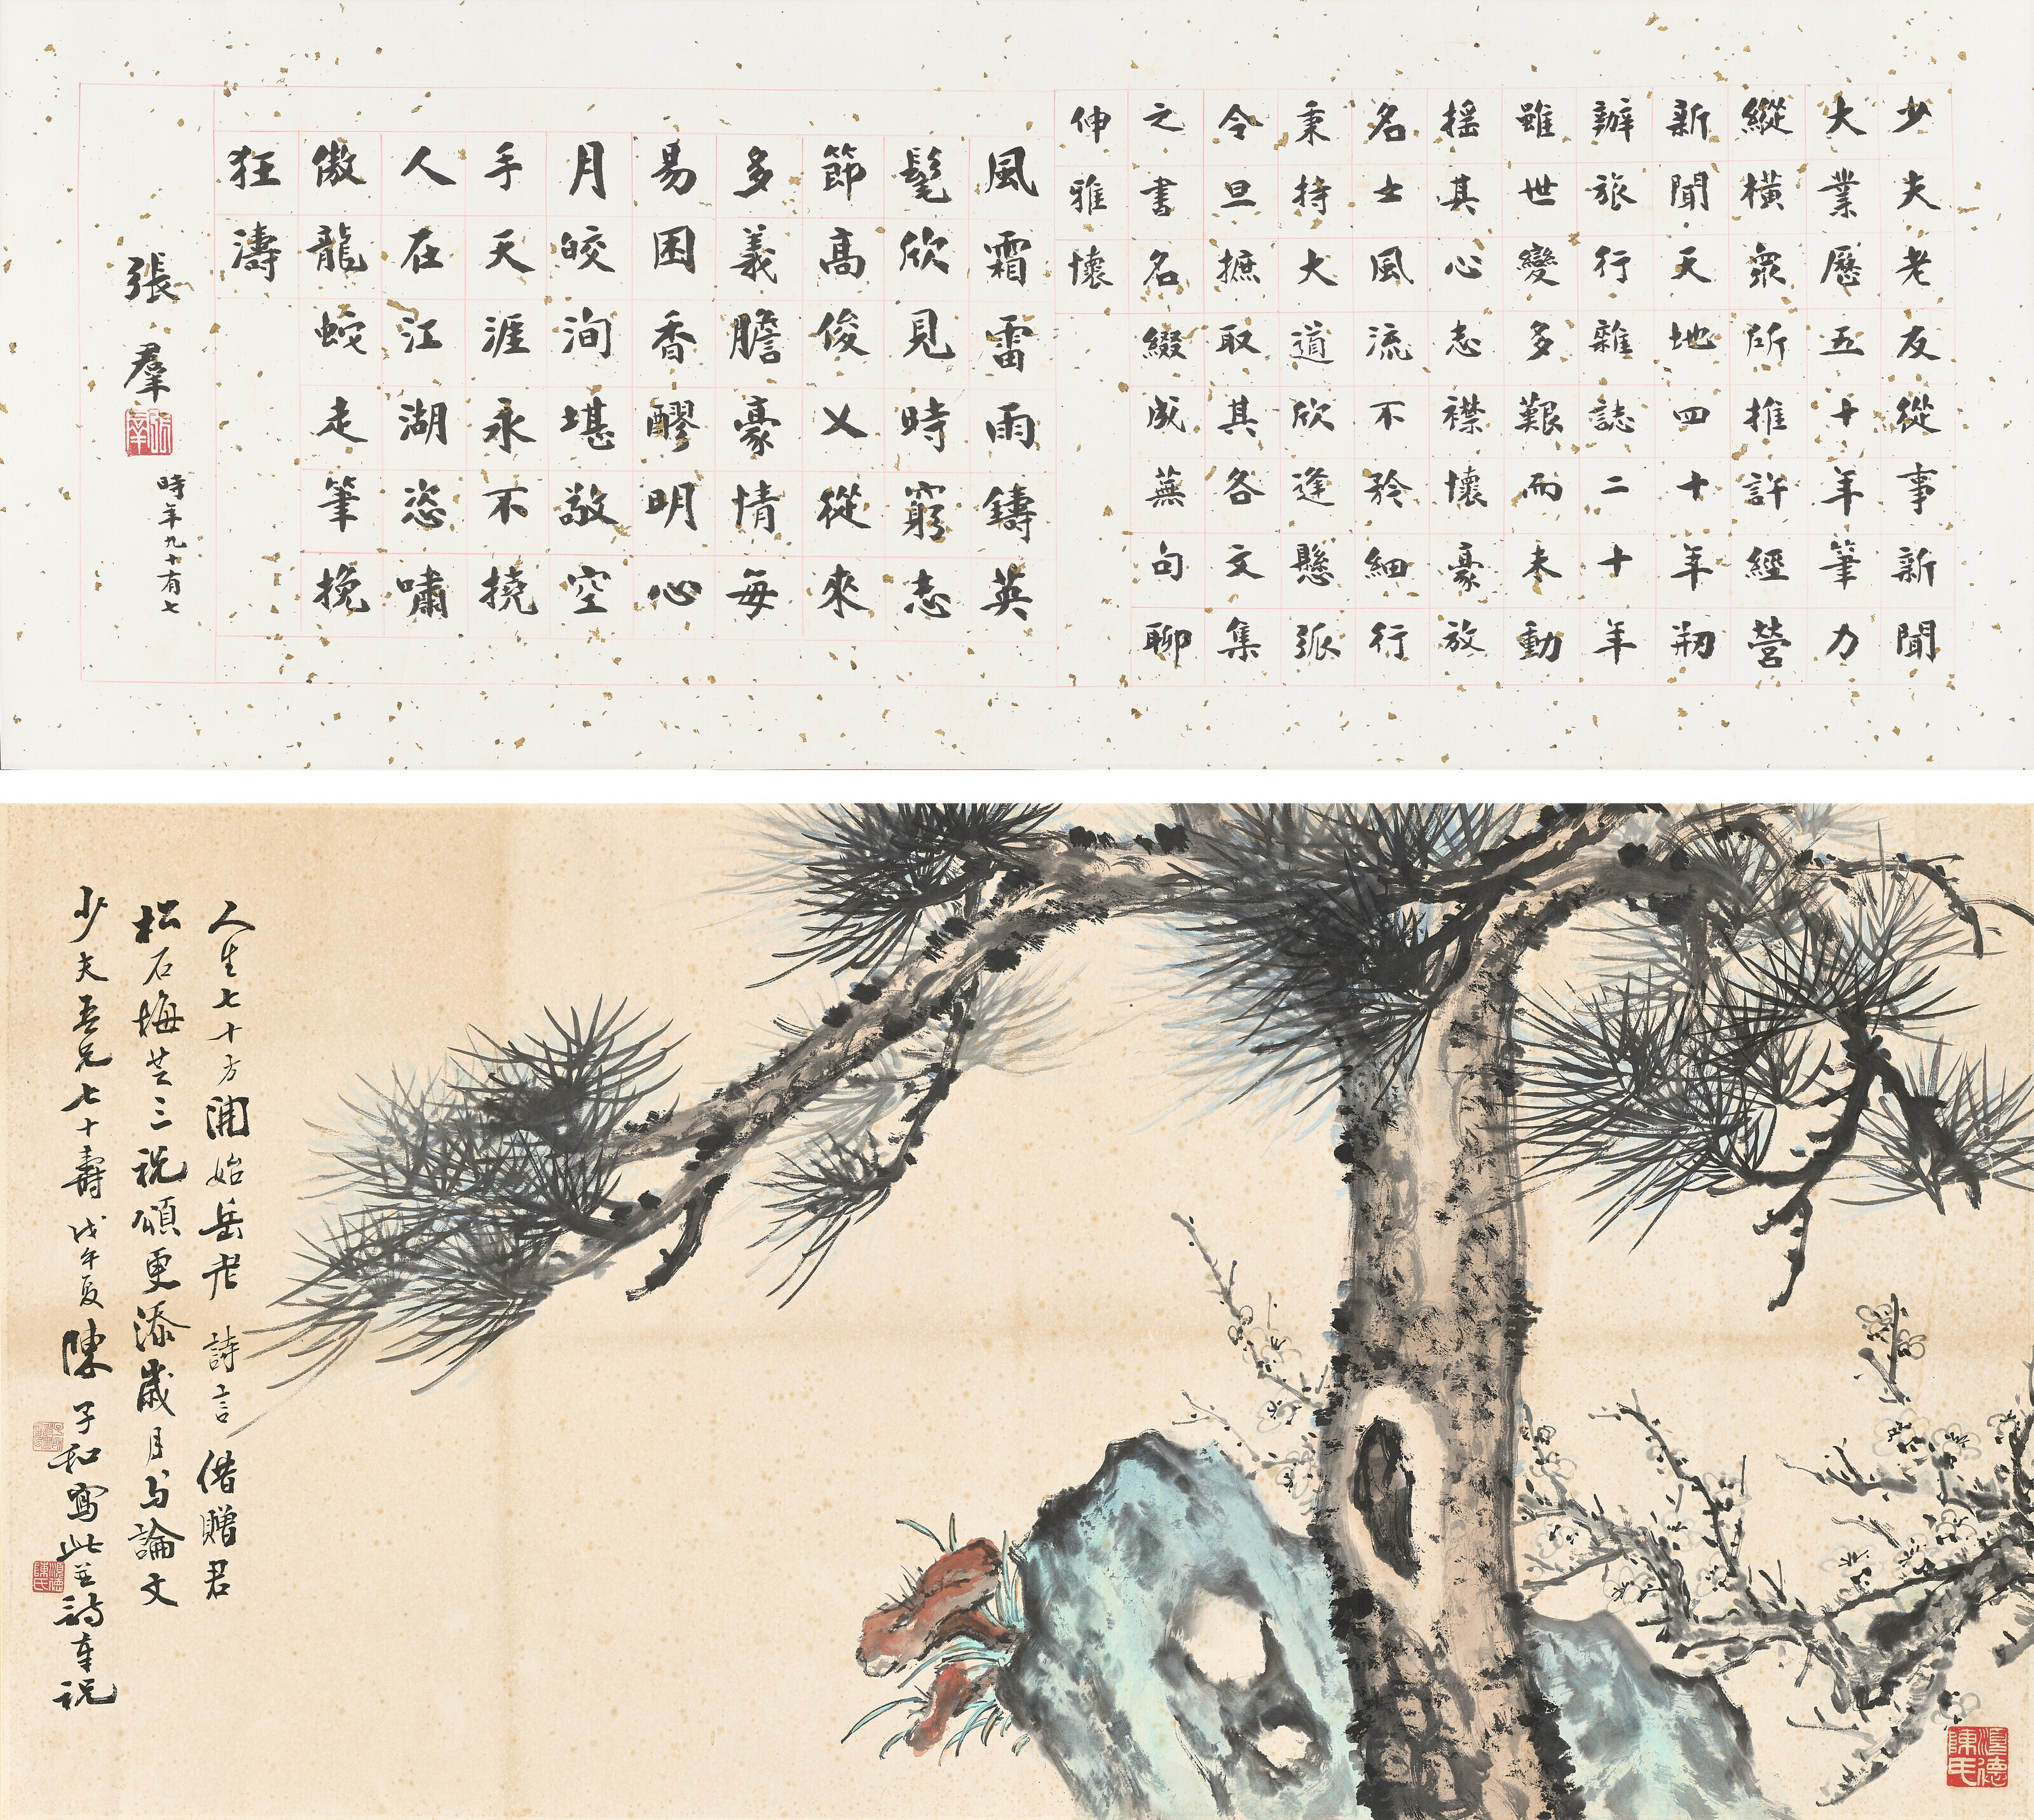 少夫老友從事新聞
大業歷五十年筆力
縱橫眾所推許經營
新聞天地四十年剏
辦旅行雜誌二十年
雖世變多艱而未動
搖其心志襟懷豪放
名士風流不矜細行
秉持大道欣逢懸弧
令旦摭取其各文集
之書名綴成蕪句聊
伸雅懷
風霜雷雨鑄英
髦欣見時窮志
節高俊乂從來
多義膽豪情每
易困香醪明心
月皎洵堪敬空
手天涯永不撓
人在江湖恣嘯
傲龍蛇走筆挽
狂濤
張羣
張羣
時年九十有七
人生七十方開始岳老詩言借贈君
松石梅芝三祝頌更添歲月與論文
少夫吾兄七十壽戊午夏陳子和寫此並詩奉祝
順德陳氏
順德陳氏